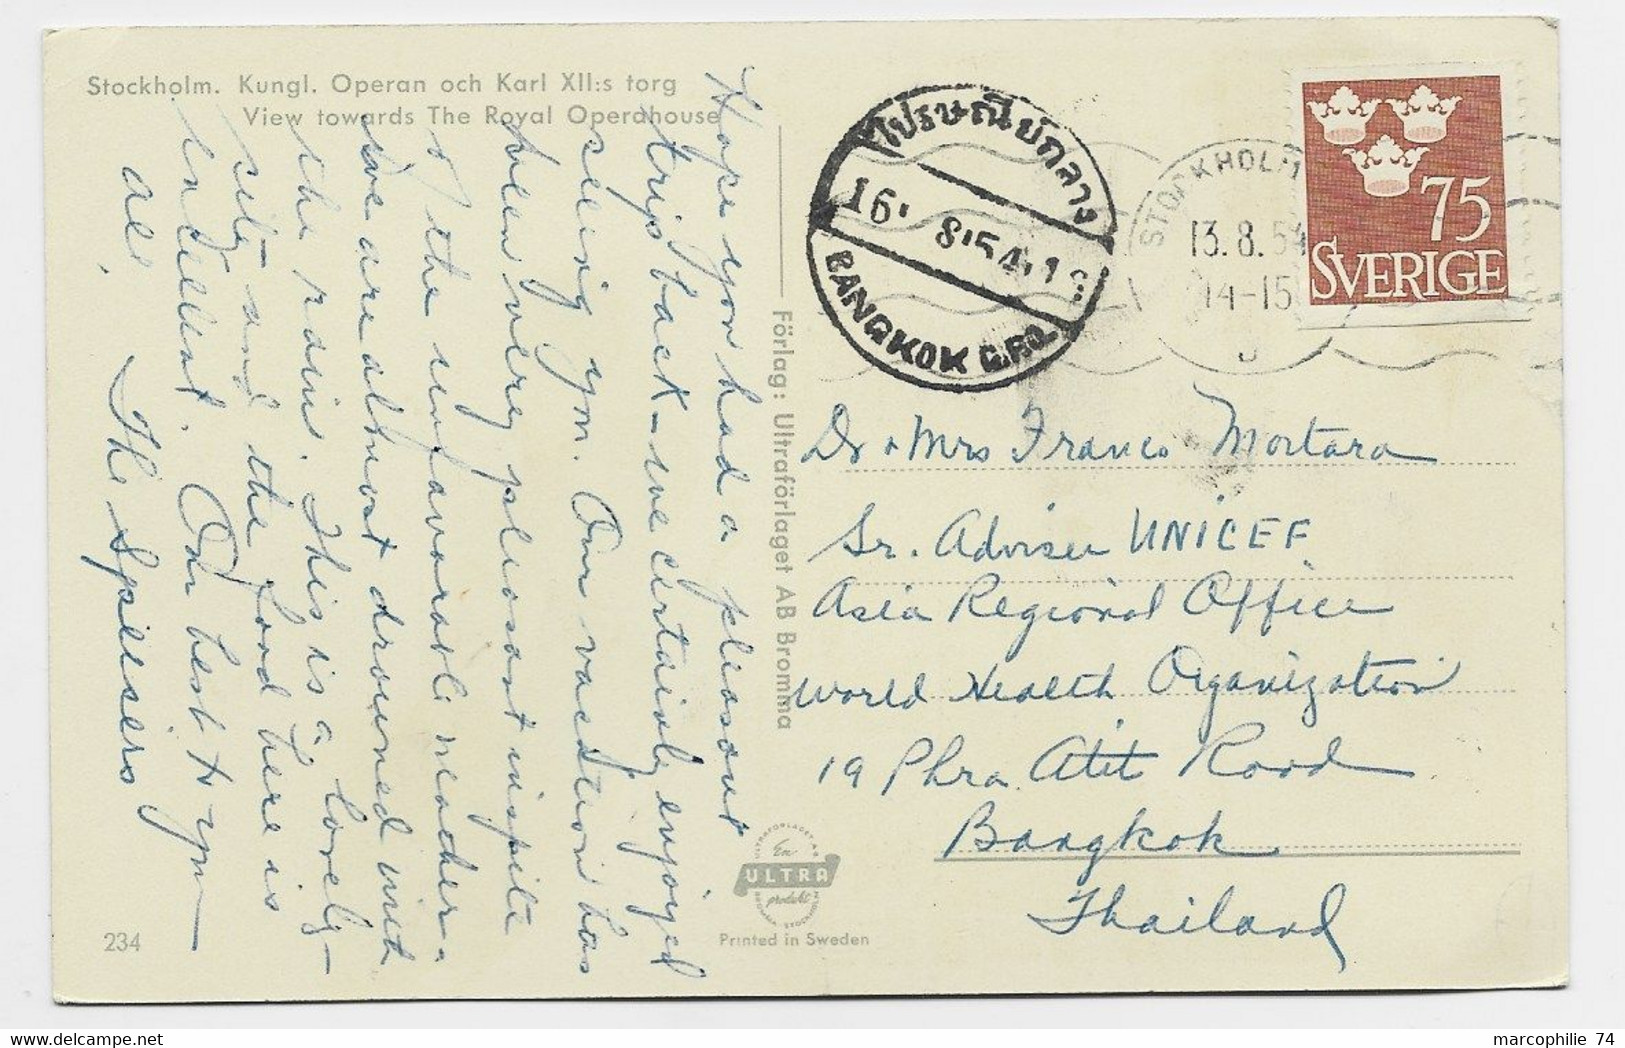 Stockholm. Kungl. Operan och Karl XII:s torg
View towards The Royal Operahouse
Hope you had a pleasant
trip back – we certainly enjoyed
seeing you. Our vacation has
been very pleasant inspite
of the unfavorable weather –
We are almost drowned with
the rains. This is a lovely –
city and the food here is
excellent. Our best to you
all,
The Speisers
234
Förlag: Ultraförlaget AB Bromma
En
ULTRA
produkt
Printed in Sweden
ไปรษณีย์กลาง
16. 8.54.1
BANGKOK G.P.O.
STOCKHOLM
13.8.54
14-15
75
SVERIGE
Dr + Mrs Franco Mortara
Sr. Adviser UNICEF
Asia Regional Office
World Health Organization
19 Phra Atit Road
Bangkok
Thailand
marcophilie 74